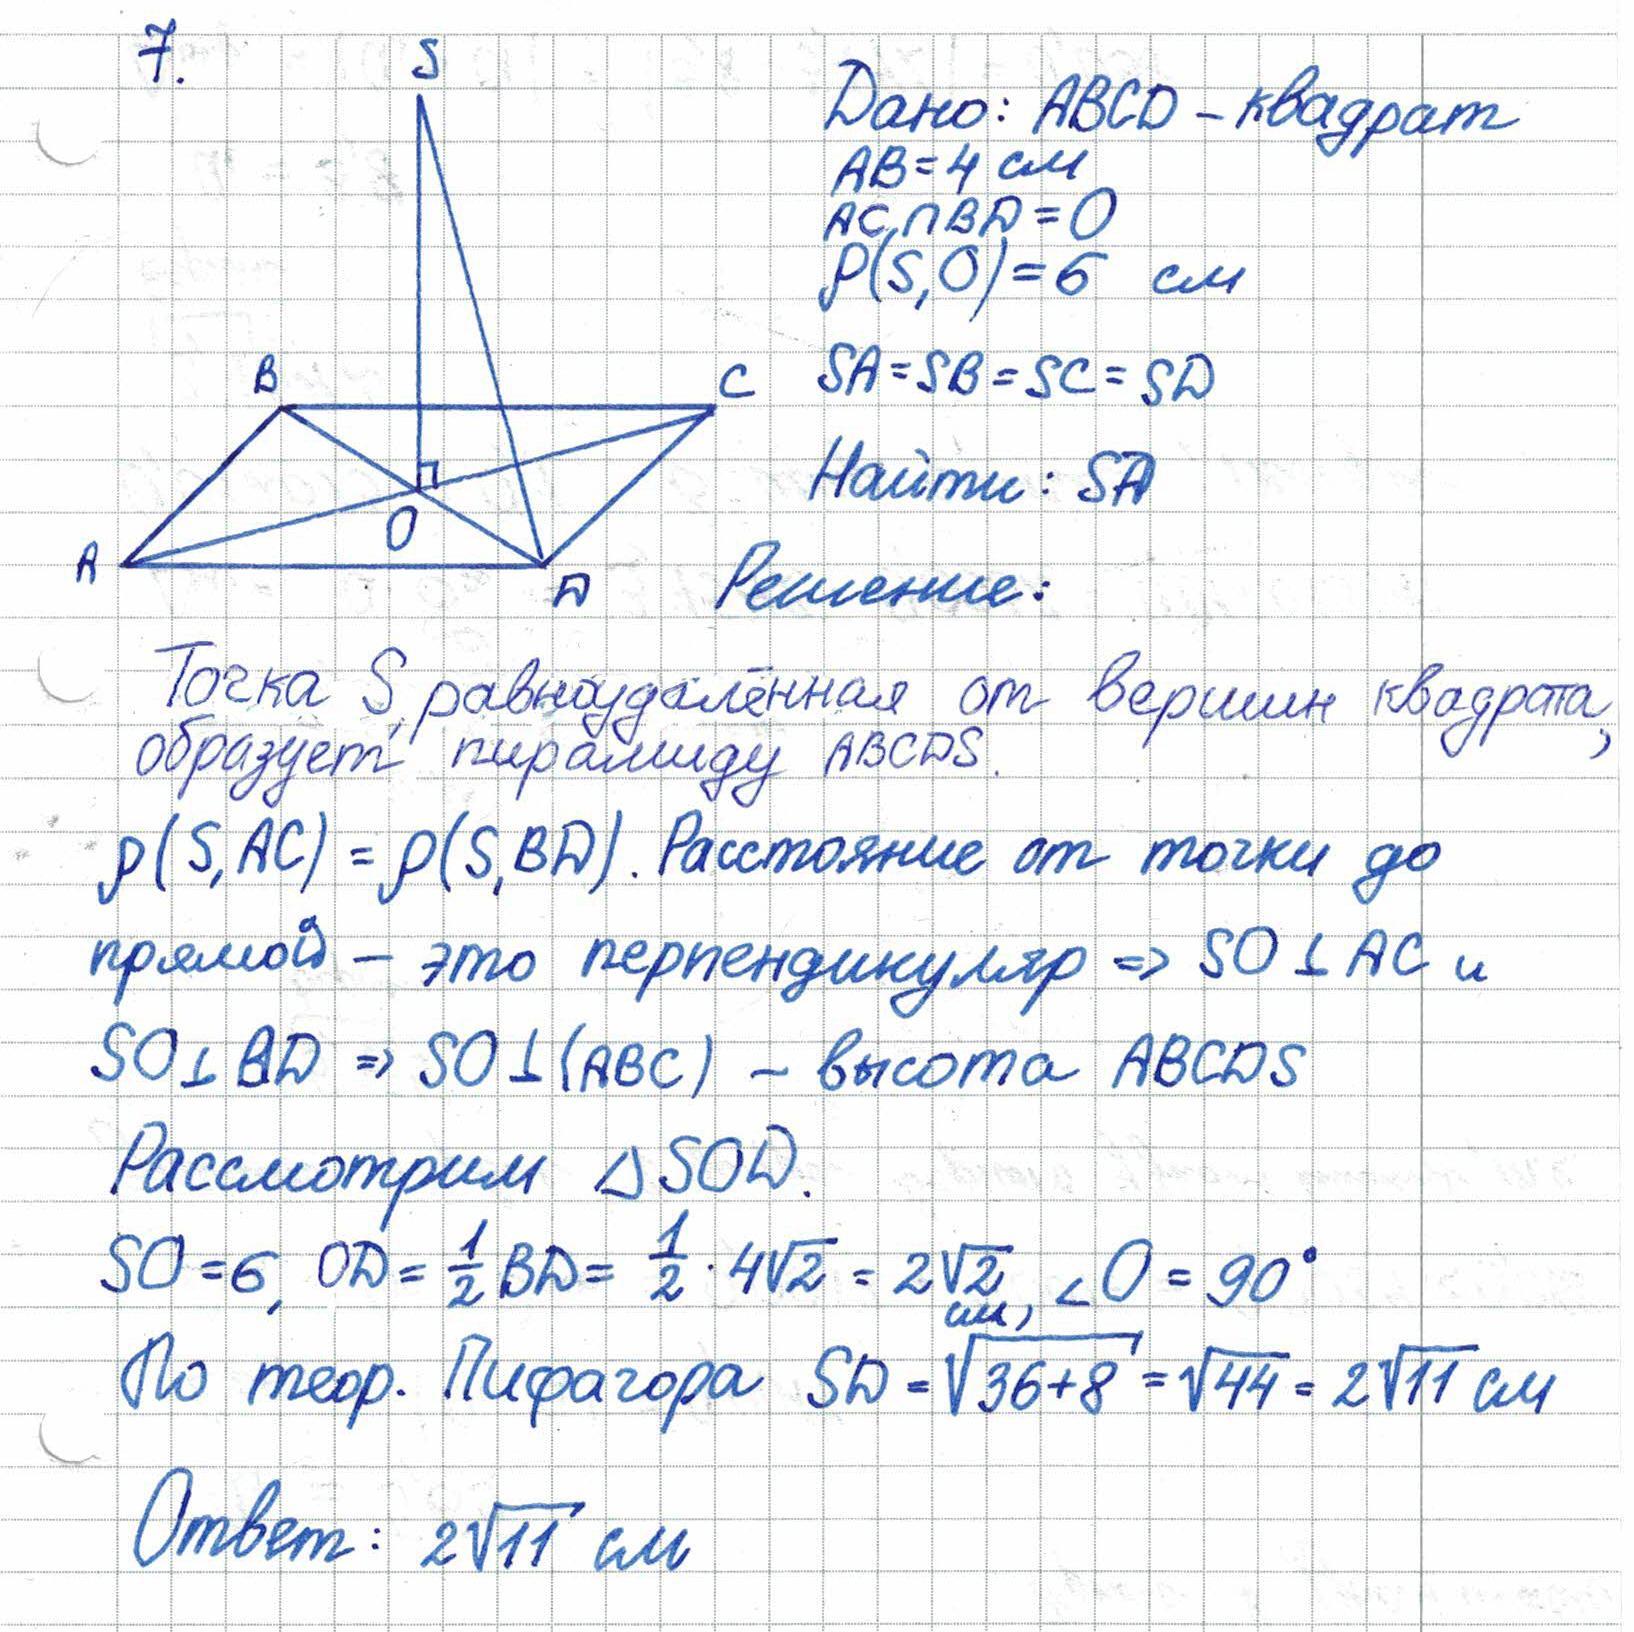 7.
S
B
C
A
O
D
Дано: ABCD – квадрат
AB = 4 см
AC ∩ BD = O
ρ(S,O) = 6 см
SA = SB = SC = SD
Найти: SA
Решение:
Точка S, равноудалённая от вершин квадрата,
образует пирамиду ABCDS.
ρ(S,AC) = ρ(S,BD). Расстояние от точки до
прямой – это перпендикуляр => SO ⊥ AC и
SO ⊥ BD => SO ⊥ (ABC) – высота ABCDS
Рассмотрим △SOD.
SO = 6, OD = 1/2 BD = 1/2 · 4√2 = 2√2 см, ∠O = 90°
По теор. Пифагора SD = √36+8 = √44 = 2√11 см
Ответ: 2√11 см